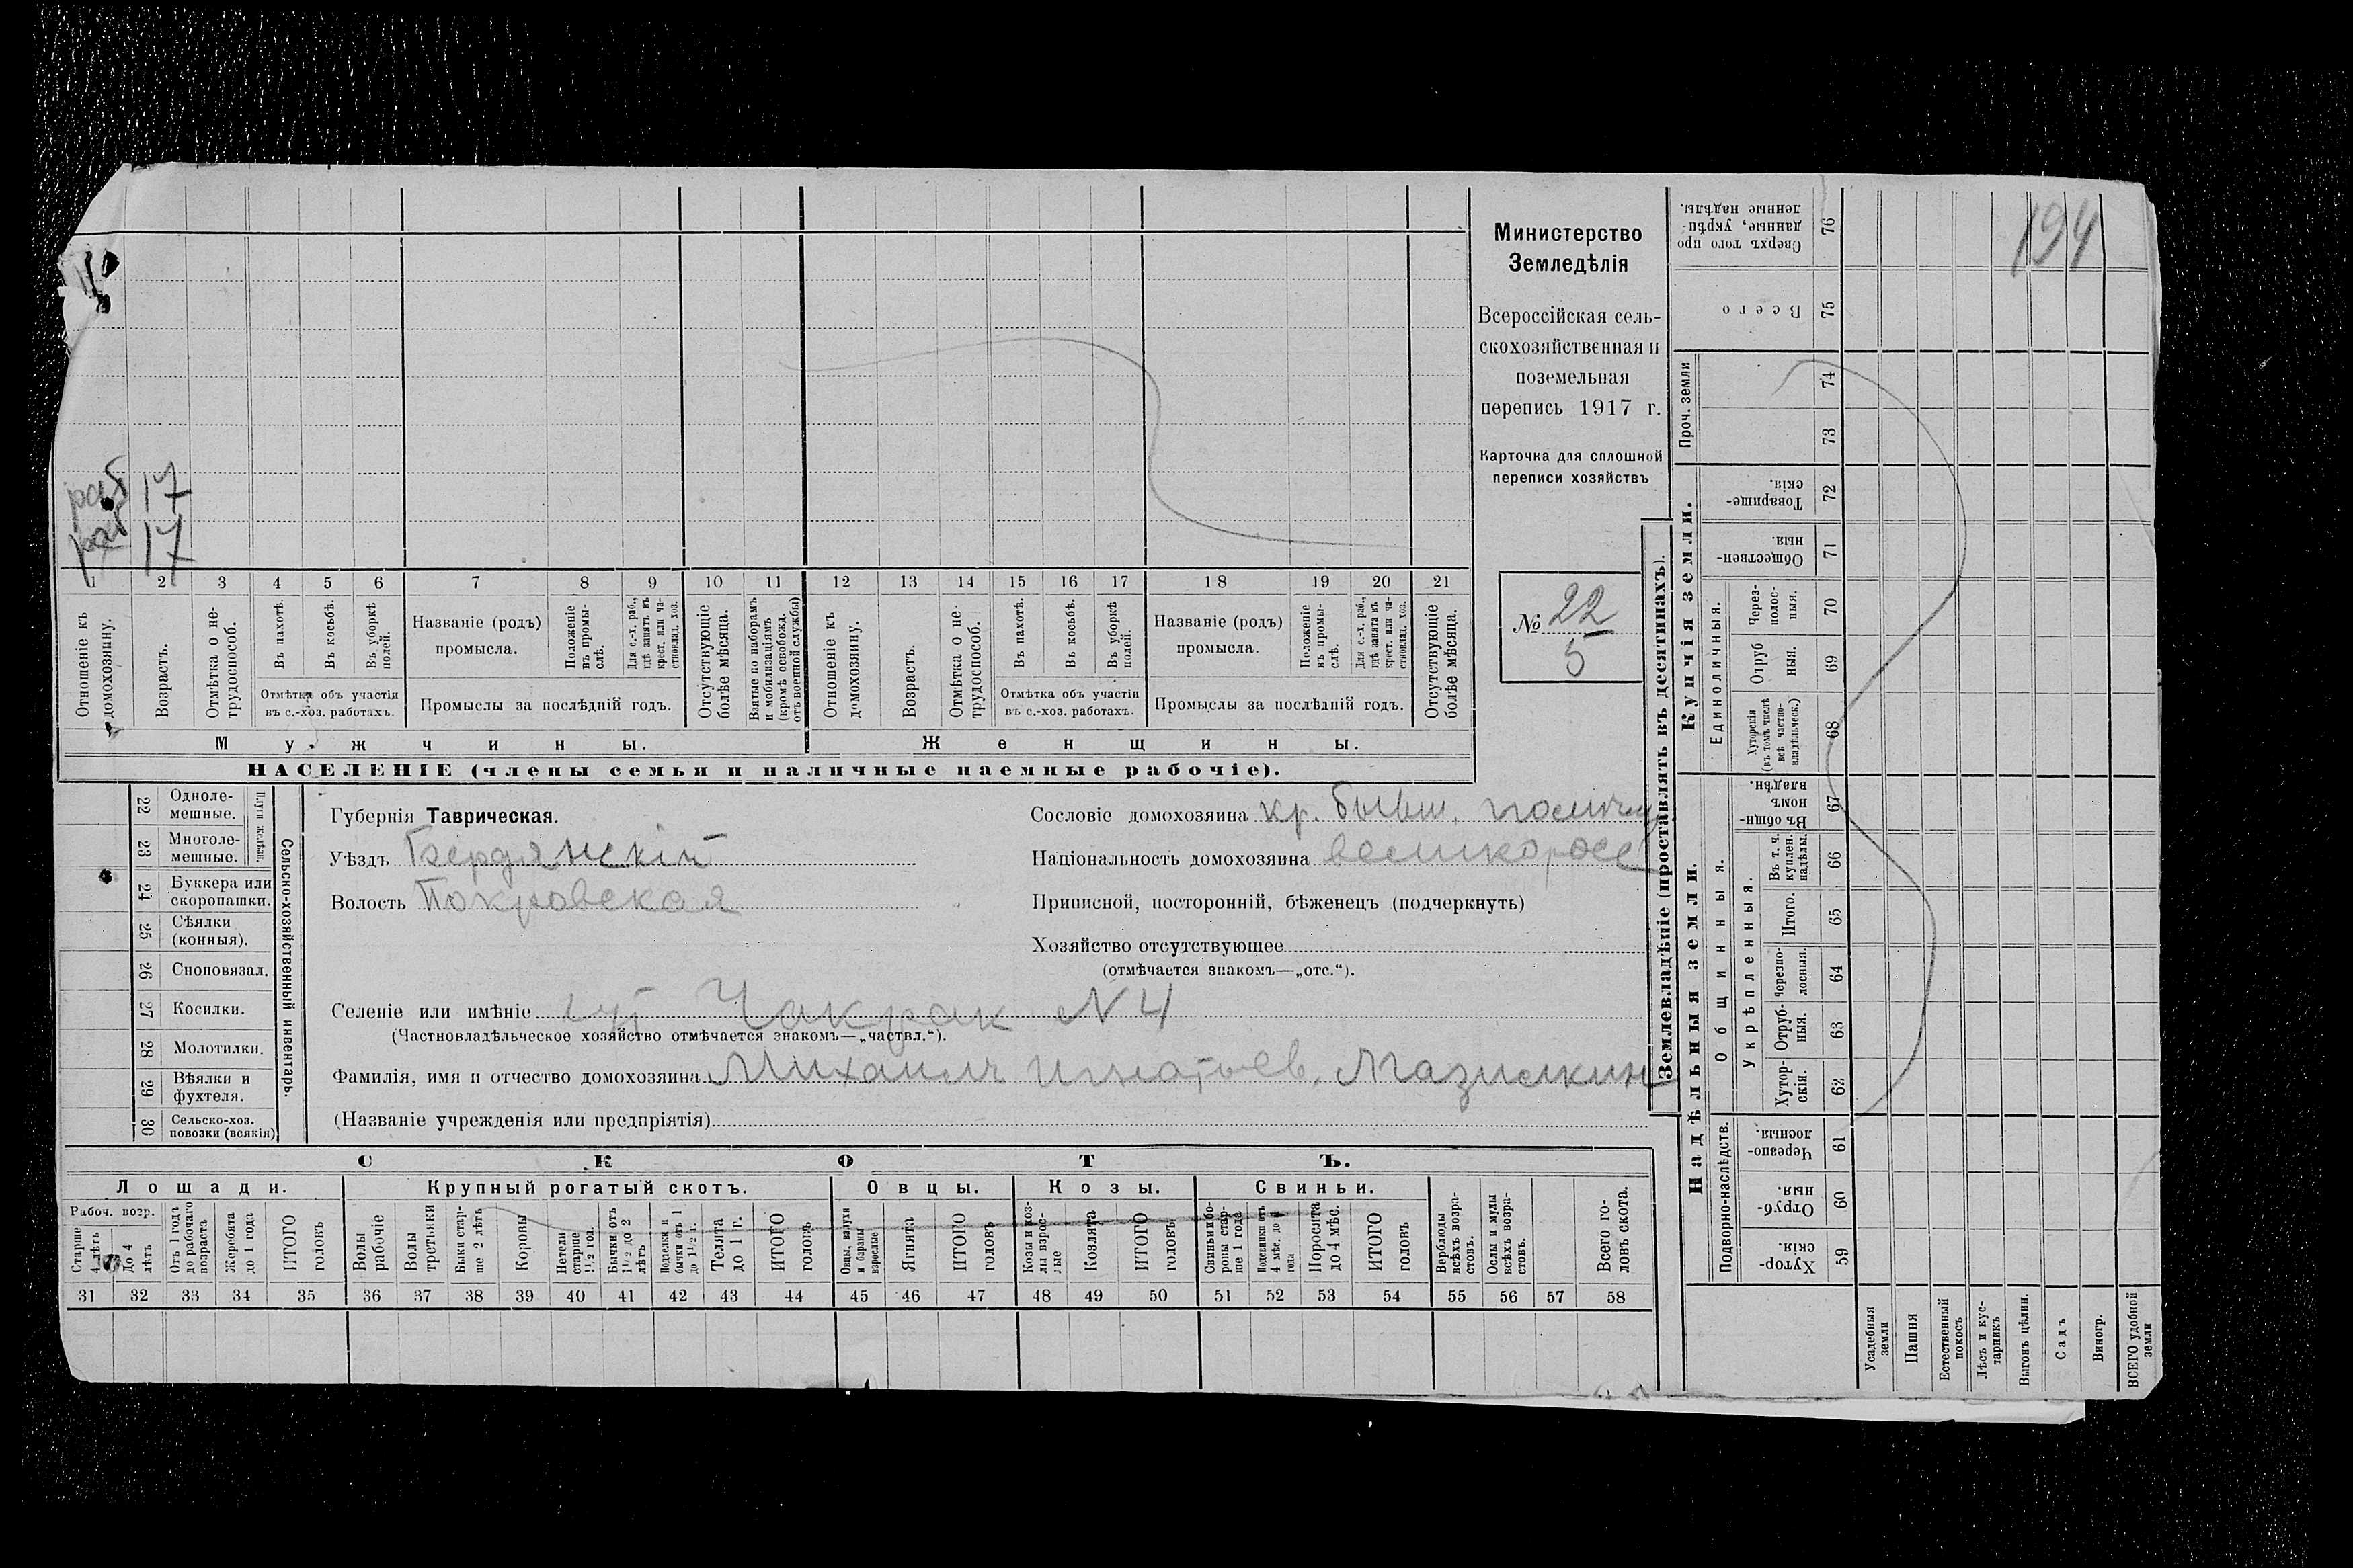 194
Министерство
Земледѣлія
Всероссійская сель-
скохозяйственная и
поземельная
перепись 1917 г.
Карточка для сплошной
переписи хозяйствъ
№ 22
5
раб 17
раб 17
1 2 3 4 5 6 7 8 9 10 11 12 13 14 15 16 17 18 19 20 21
Отношеніе къ домохозяину.
Возрастъ.
Отмѣтка о не-трудоспособ.
Въ пахотѣ.
Въ косьбѣ.
Въ уборкѣ полей.
Отмѣтка объ участіи
въ с.-хоз. работахъ.
Названіе (родъ)
промысла.
Положеніе въ промы-слѣ.
Для с.-х. раб., гдѣ занятъ въ крест. или ча-стновлад. хоз.
Промыслы за послѣдній годъ.
Отсутствующіе болѣе мѣсяца.
Взятые по наборамъ и мобилизаціямъ (кромѣ освобожд. отъ военной службы)
Отношеніе къ домохозяину.
Возрастъ.
Отмѣтка о не-трудоспособ.
Въ пахотѣ.
Въ косьбѣ.
Въ уборкѣ полей.
Отмѣтка объ участіи
въ с.-хоз. работахъ.
Названіе (родъ)
промысла.
Положеніе въ промы-слѣ.
Для с.-х. раб., гдѣ занята въ крест. или ча-стновлад. хоз.
Промыслы за послѣдній годъ.
Отсутствующіе болѣе мѣсяца.
Мужчины. Женщины.
НАСЕЛЕНІЕ (члены семьи и наличные наемные рабочіе).
22 Одноле-мешные.
23 Многоле-мешные.
24 Буккера или скоропашки.
25 Сѣялки (конныя).
26 Сноповязал.
27 Косилки.
28 Молотилки.
29 Вѣялки и фухтеля.
30 Сельско-хоз. повозки (всякія)
Сельско-хозяйственный инвентарь.
Губернія Таврическая.
Уѣздъ Бердянскій
Волость Покровская
Сословіе домохозяина кр. бывш.
Національность домохозяина великоросс
Приписной, посторонній, бѣженецъ (подчеркнуть)
Хозяйство отсутствующее
(отмѣчается знакомъ—„отс.“).
Селеніе или имѣніе Чакрак N 4
(Частновладѣльческое хозяйство отмѣчается знакомъ—„частвл.“).
Фамилія, имя и отчество домохозяина Михаилъ Игнатьев. Мазилкин
(Названіе учрежденія или предпріятія)
СКОТЪ.
Лошади. Крупный рогатый скотъ. Овцы. Козы. Свиньи.
Рабоч. возр.
Старше 4 лѣтъ
До 4 лѣтъ
Отъ 1 года до рабочаго возраста
Жеребята до 1 года
ИТОГО головъ
Волы рабочіе
Волы третьяки
Быки стар-ше 2 лѣтъ
Коровы
Нетели старше 1½ год.
Бычки отъ 1½ до 2 лѣтъ
Подтелки и бычки отъ 1 до 1½ г.
Телята до 1 г.
ИТОГО головъ
Овцы, валухи и бараны взрослые
Ягнята
ИТОГО головъ
Козы и коз-лы взрос-лые
Козлята
ИТОГО головъ
Свиньи и бо-ровы стар-ше 1 года
Поросята до 4 мѣс.
ИТОГО головъ
Верблюды всѣхъ возра-стовъ.
Ослы и мулы всѣхъ возра-стовъ.
Всего го-ловъ скота.
31 32 33 34 35 36 37 38 39 40 41 42 43 44 45 46 47 48 49 50 51 52 53 54 55 56 57 58
Землевладѣніе (проставлять въ десятинахъ).
Купчія земли.
Надѣльныя земли.
Проч. земли
Единоличныя.
Общинныя.
Укрѣпленныя.
Подворно-наслѣдств.
Сверхъ того про данные, укрѣп-ленные надѣлы. 76
Всего 75
74
73
Товарище-скія. 72
Обществен-ныя. 71
Через-полос-ныя. 70
Отруб ныя. 69
Хуторскія (въ томъ числѣ всѣ частно-владѣльческ.) 68
Въ общин-номъ владѣн. 67
Въ т. ч. куплен. надѣлы. 66
Итого. 65
Черезпо-лосныя. 64
Отруб-ныя. 63
Хутор-скія. 62
Черезпо-лосныя. 61
Отруб-ныя. 60
Хутор-скія. 59
Усадебныя земли
Пашня
Естественный покосъ
Лѣсъ и кус-тарникъ
Выгонъ цѣлин.
Садъ
Виногр.
ВСЕГО удобной земли